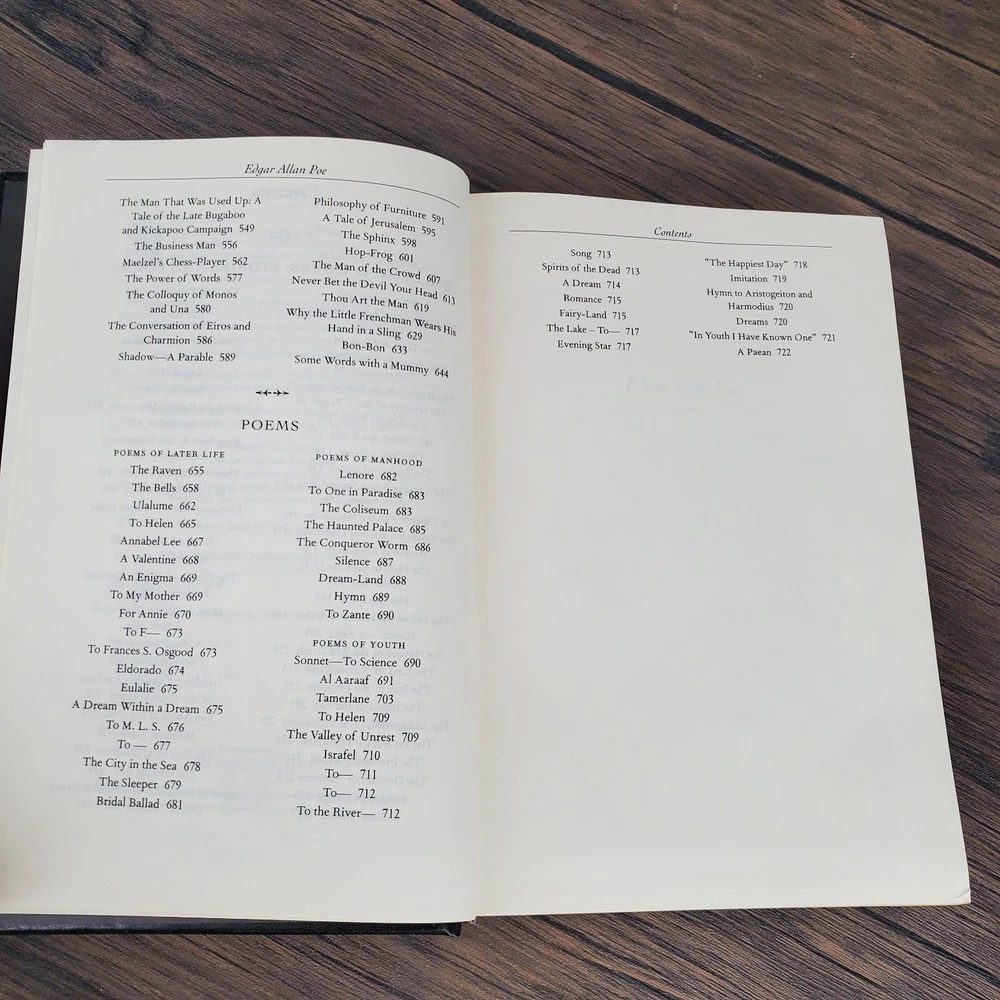 Edgar Allan Poe
The Man That Was Used Up: A
Tale of the Late Bugaboo
and Kickapoo Campaign 549
The Business Man 556
Maelzel's Chess-Player 562
The Power of Words 577
The Colloquy of Monos
and Una 580
The Conversation of Eiros and
Charmion 586
Shadow—A Parable 589
Philosophy of Furniture 591
A Tale of Jerusalem 595
The Sphinx 598
Hop-Frog 601
The Man of the Crowd 607
Never Bet the Devil Your Head 613
Thou Art the Man 619
Why the Little Frenchman Wears His
Hand in a Sling 629
Bon-Bon 633
Some Words with a Mummy 644
POEMS
POEMS OF LATER LIFE
The Raven 655
The Bells 658
Ulalume 662
To Helen 665
Annabel Lee 667
A Valentine 668
An Enigma 669
To My Mother 669
For Annie 670
To F— 673
To Frances S. Osgood 673
Eldorado 674
Eulalie 675
A Dream Within a Dream 675
To M. L. S. 676
To — 677
The City in the Sea 678
The Sleeper 679
Bridal Ballad 681
POEMS OF MANHOOD
Lenore 682
To One in Paradise 683
The Coliseum 683
The Haunted Palace 685
The Conqueror Worm 686
Silence 687
Dream-Land 688
Hymn 689
To Zante 690
POEMS OF YOUTH
Sonnet—To Science 690
Al Aaraaf 691
Tamerlane 703
To Helen 709
The Valley of Unrest 709
Israfel 710
To— 711
To— 712
To the River— 712
Contents
Song 713
Spirits of the Dead 713
A Dream 714
Romance 715
Fairy-Land 715
The Lake – To— 717
Evening Star 717
"The Happiest Day" 718
Imitation 719
Hymn to Aristogeiton and
Harmodius 720
Dreams 720
"In Youth I Have Known One" 721
A Paean 722